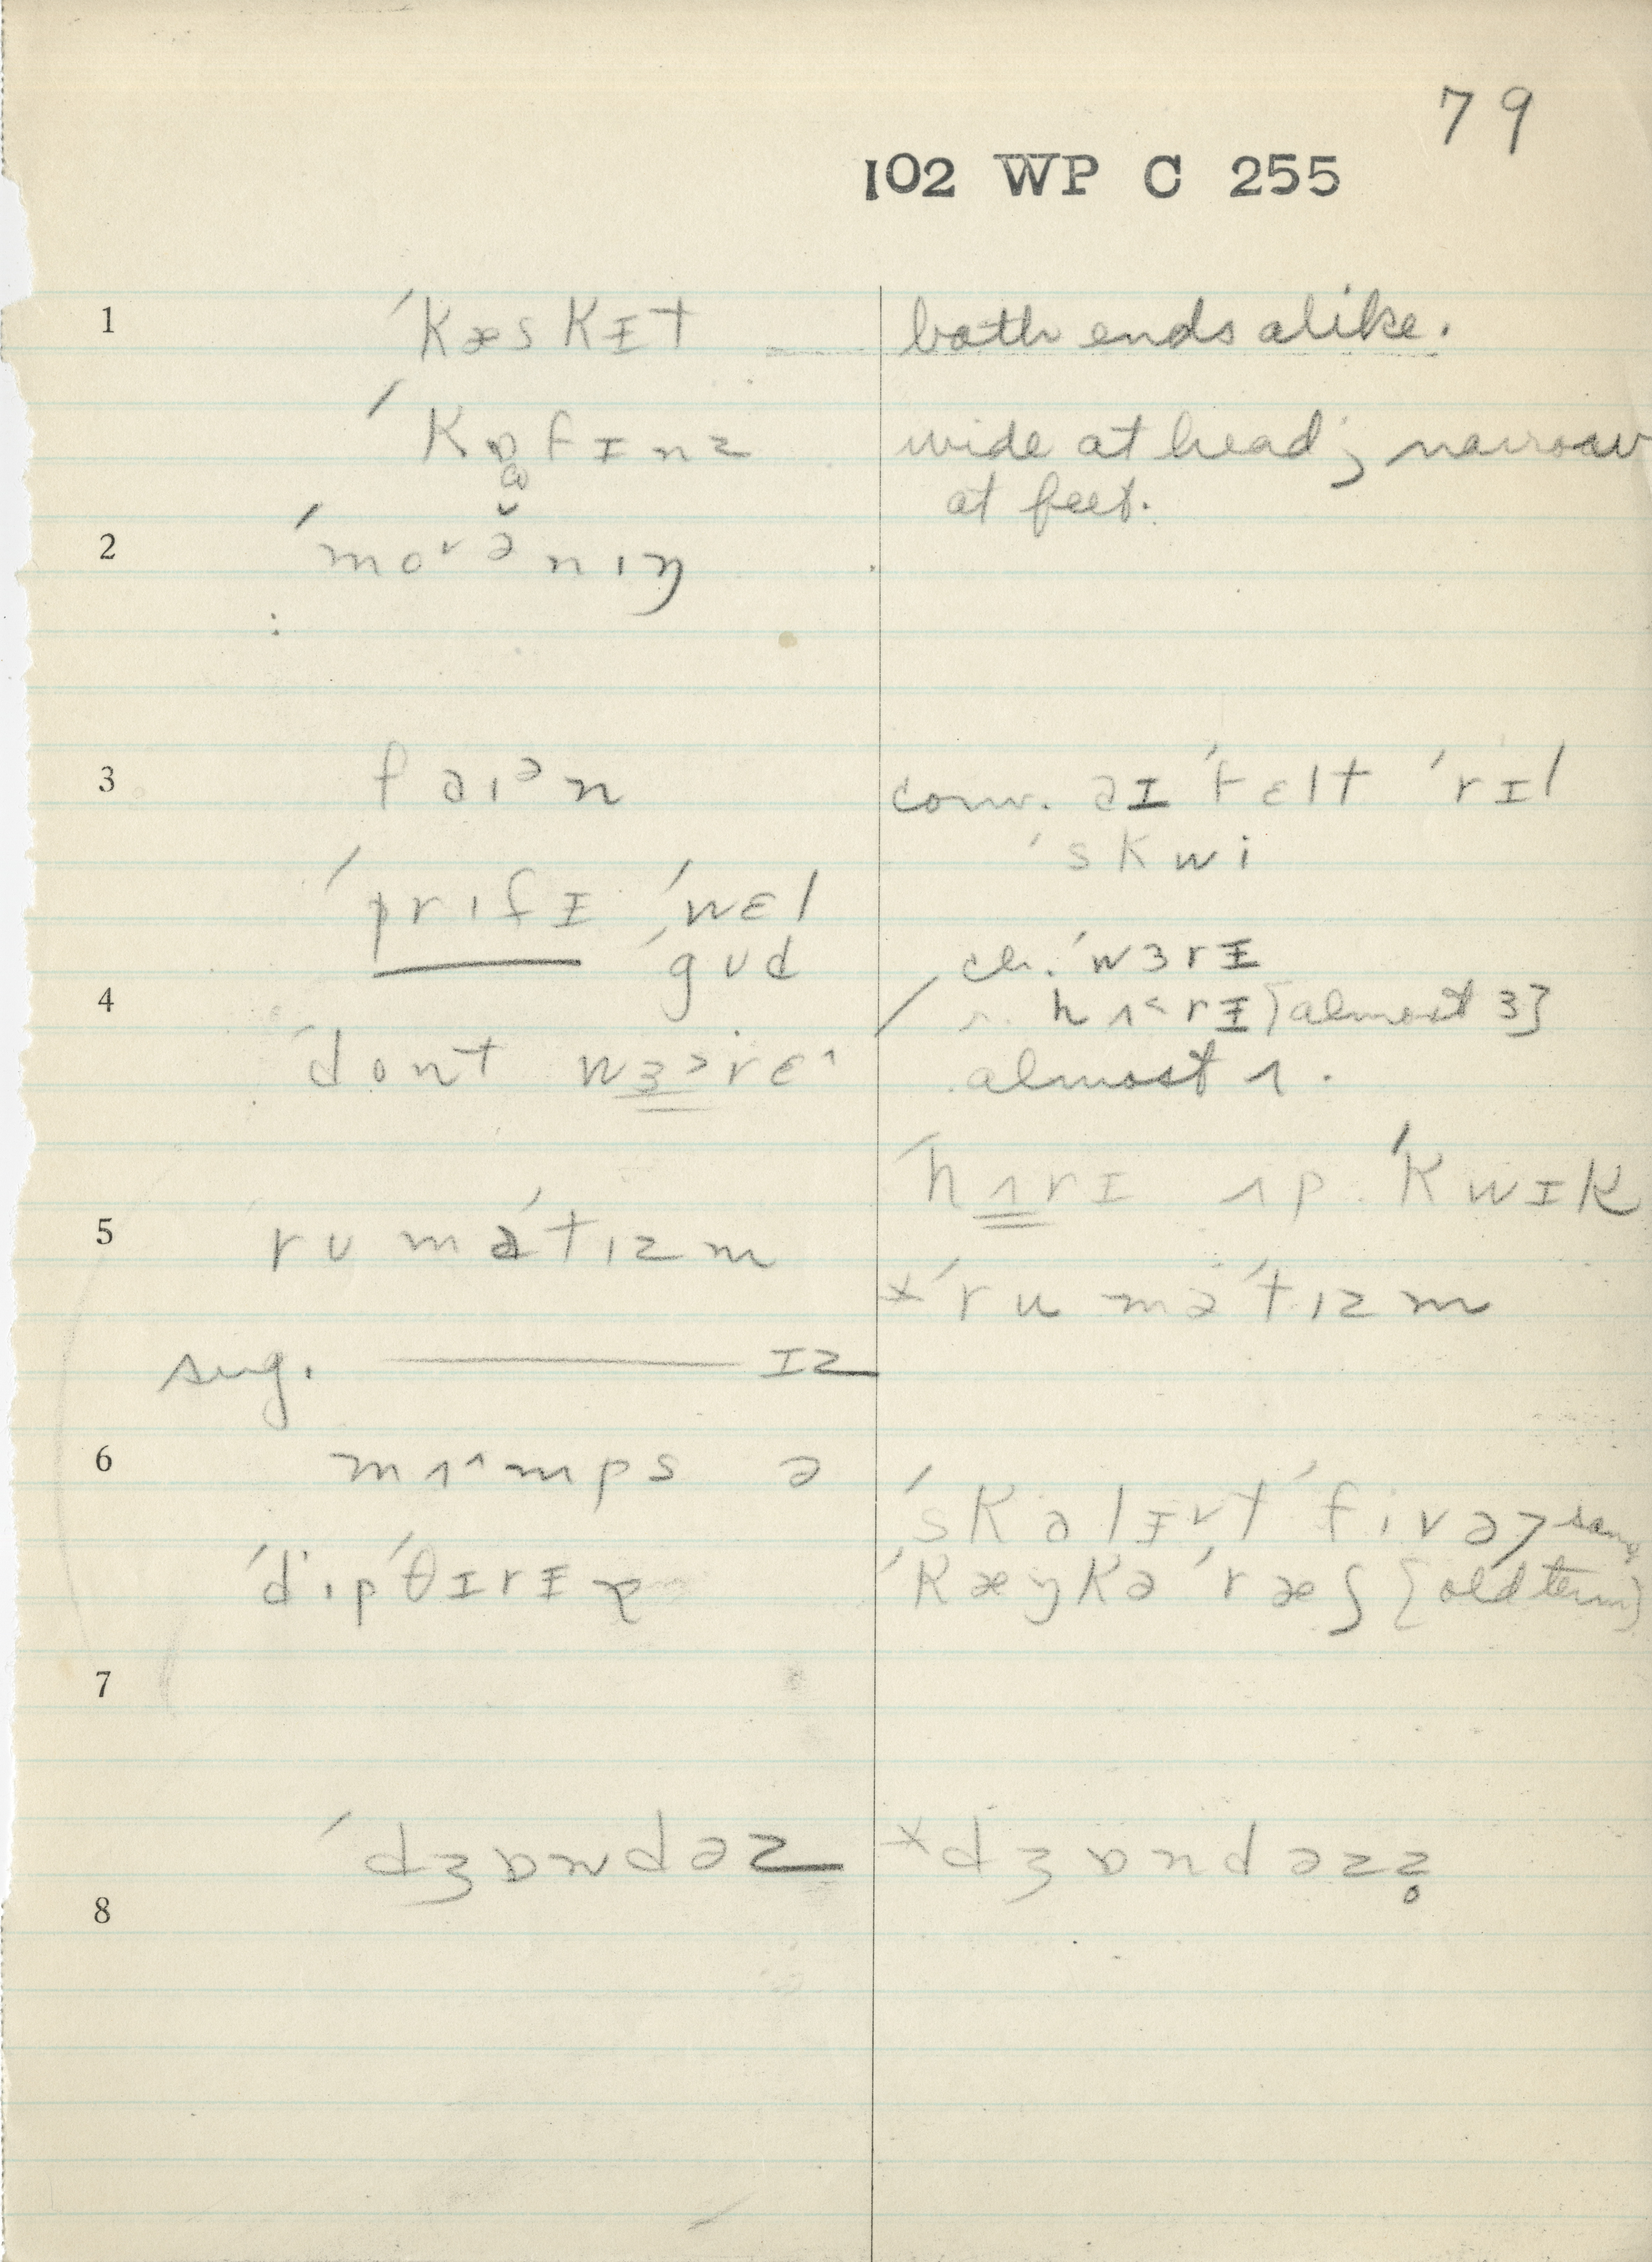 79
102 WP C 255
1 ˈkæskɪt both ends alike.
ˈkɒfɪnz wide at head; narrow
at feet.
2 ˈmoˇənıŋ
3 faıᵊn conv. aɪ ˈfɛlt ˈrɪl
ˈskwi
ˈprıfɪ ˈwɛl
ˈgʊd ch. ˈwɜrɪ
4 hʌ˂rɪ [almost ɜ]
ˈdont wɜ˃rɛ^ almost ʌ.
ˈhʌrɪ ʌp ˈkwɪk
5 rʊməˈtızm
*ˈruməˈtızm
sug. ——— ɪz
6 mʌ^mps ə
ˈskalɪˇt ˈfivə > same
ˈdıpˈθɪrɪə ˈkæŋkəˈræʃ [old term]
7
ˈdʒɒndəz *dʒɒndəzz̥
8